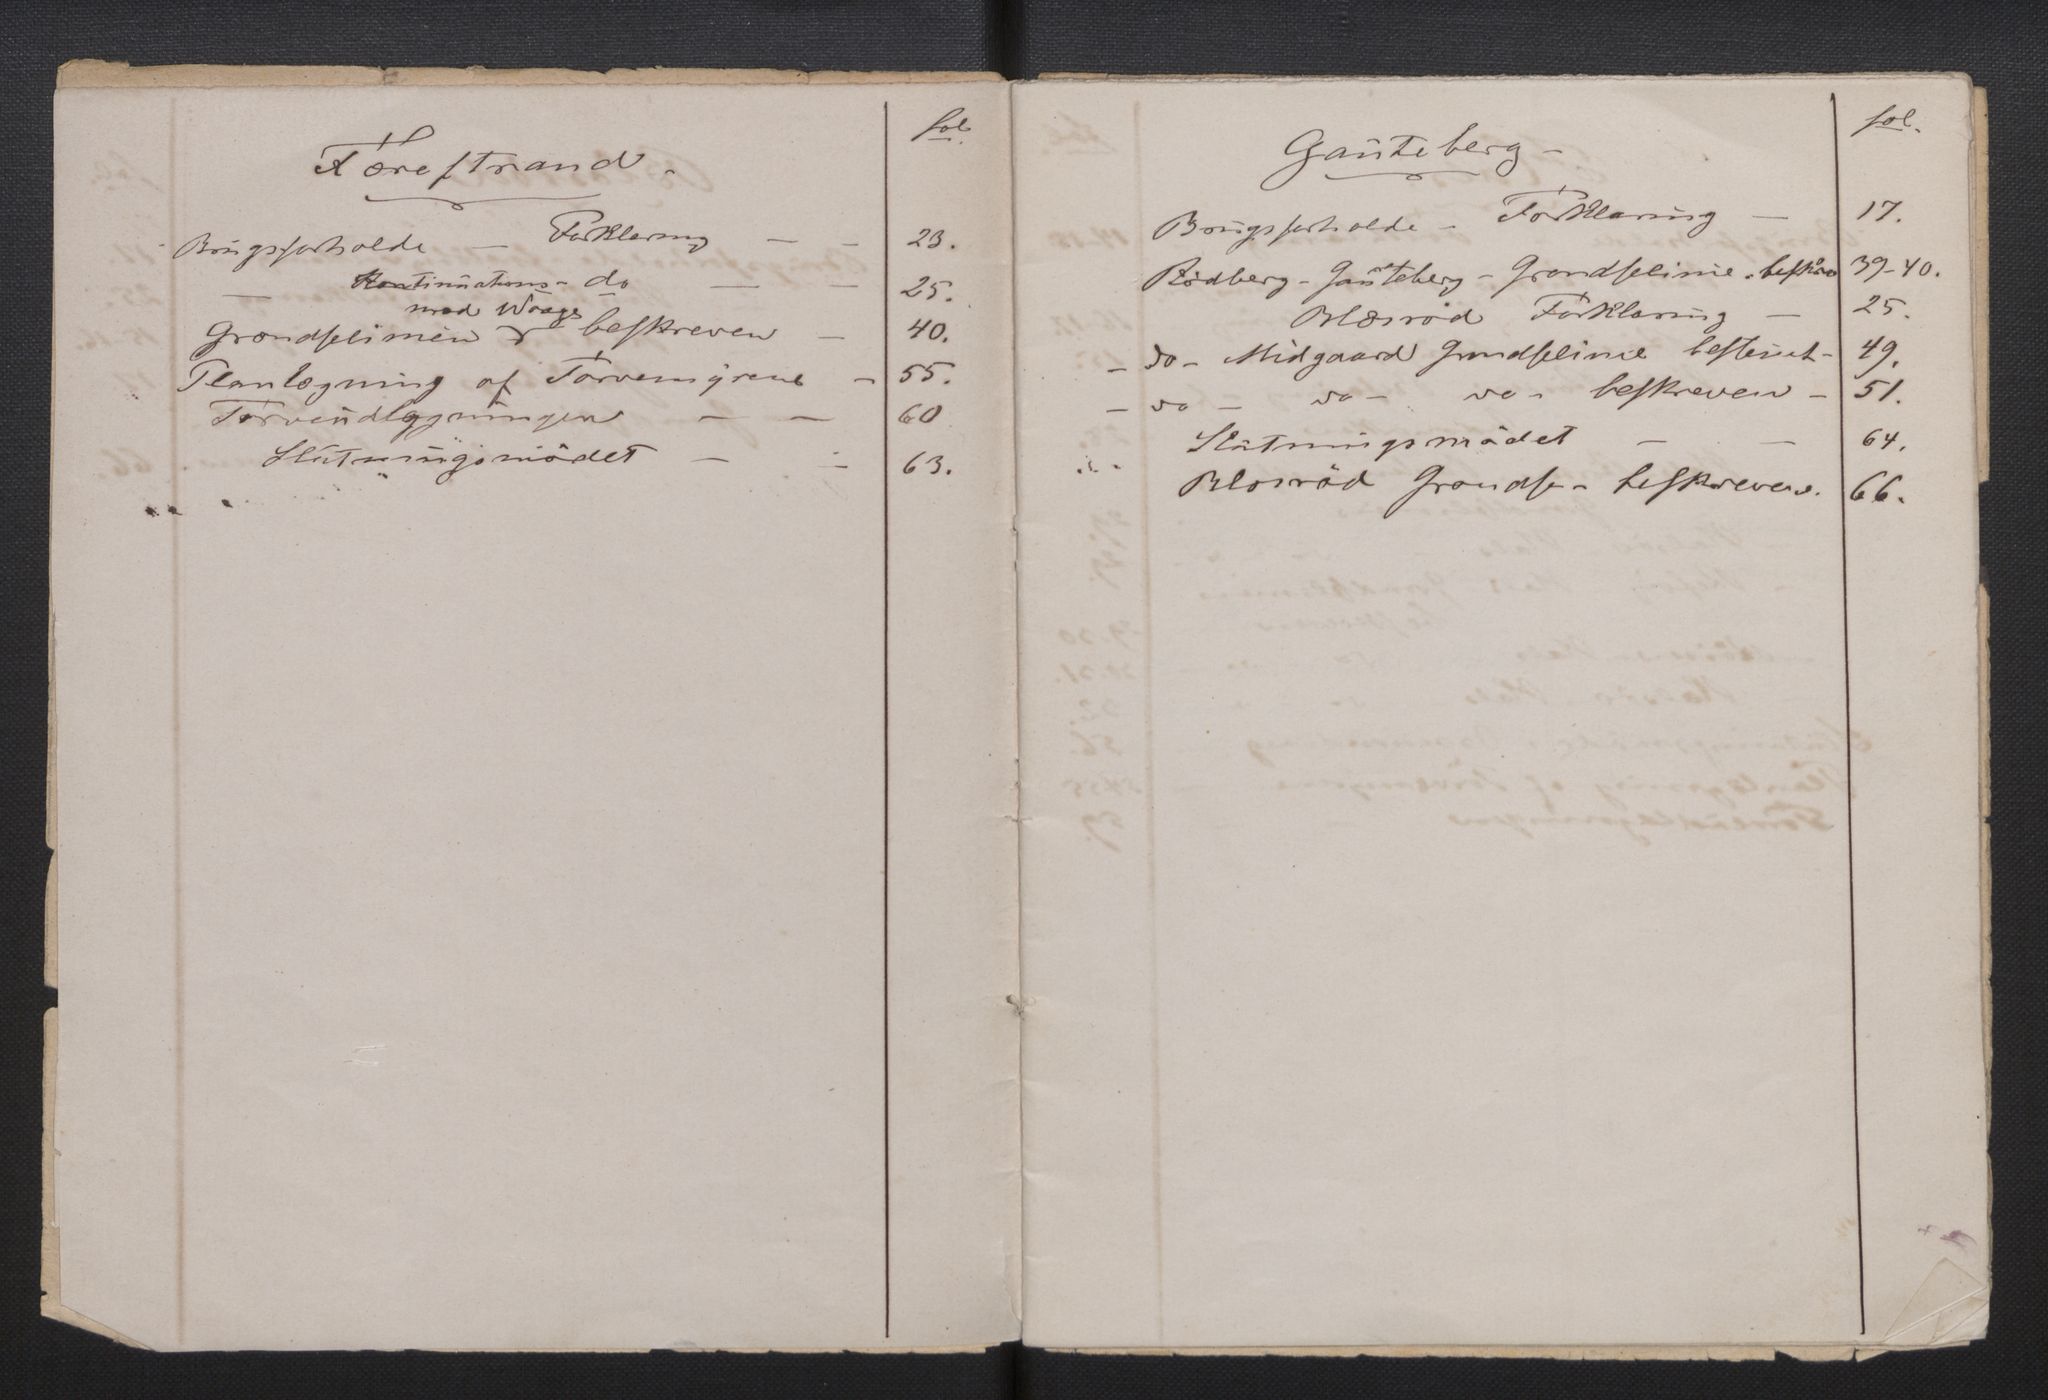 fol.
Törestrand.
Brugsforholde — Forklaring — — 23.
— Kontinuations- do — — 25.
med Waage
Grændselinien beskreven — 40.
Planlægning af Torvemyrene — 55.
Torveudlægningen — — 60
Slutningsmödet — — 63.
fol.
Gauteberg —
Brugsforholde — Forklaring — 17.
Rödberg - Gauteberg - Grændselinie - beskrev 39-40.
Blæsröd Forklaring — 25.
— do - Midgaard Grændselinie bestemt - 49.
— do — do - do - beskreven — 51.
Slutningsmödet — — 64.
Blæsröd Grændse - beskreven. 66.